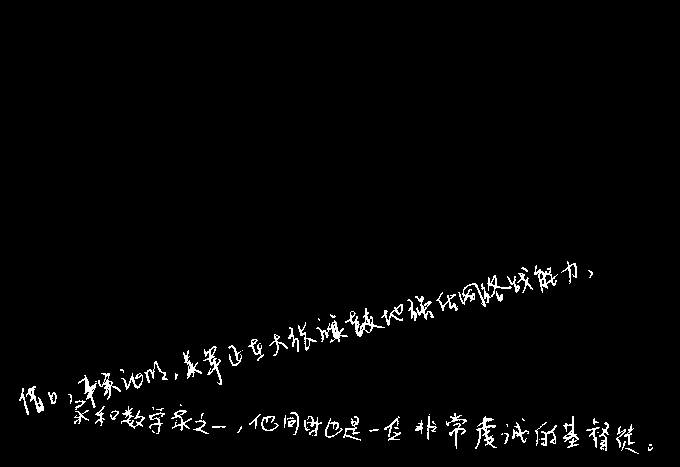 借口，事实证明，美军正在大张旗鼓地强化网络战能力，
家和数学家之一，他同时也是一位非常虔诚的基督徒。